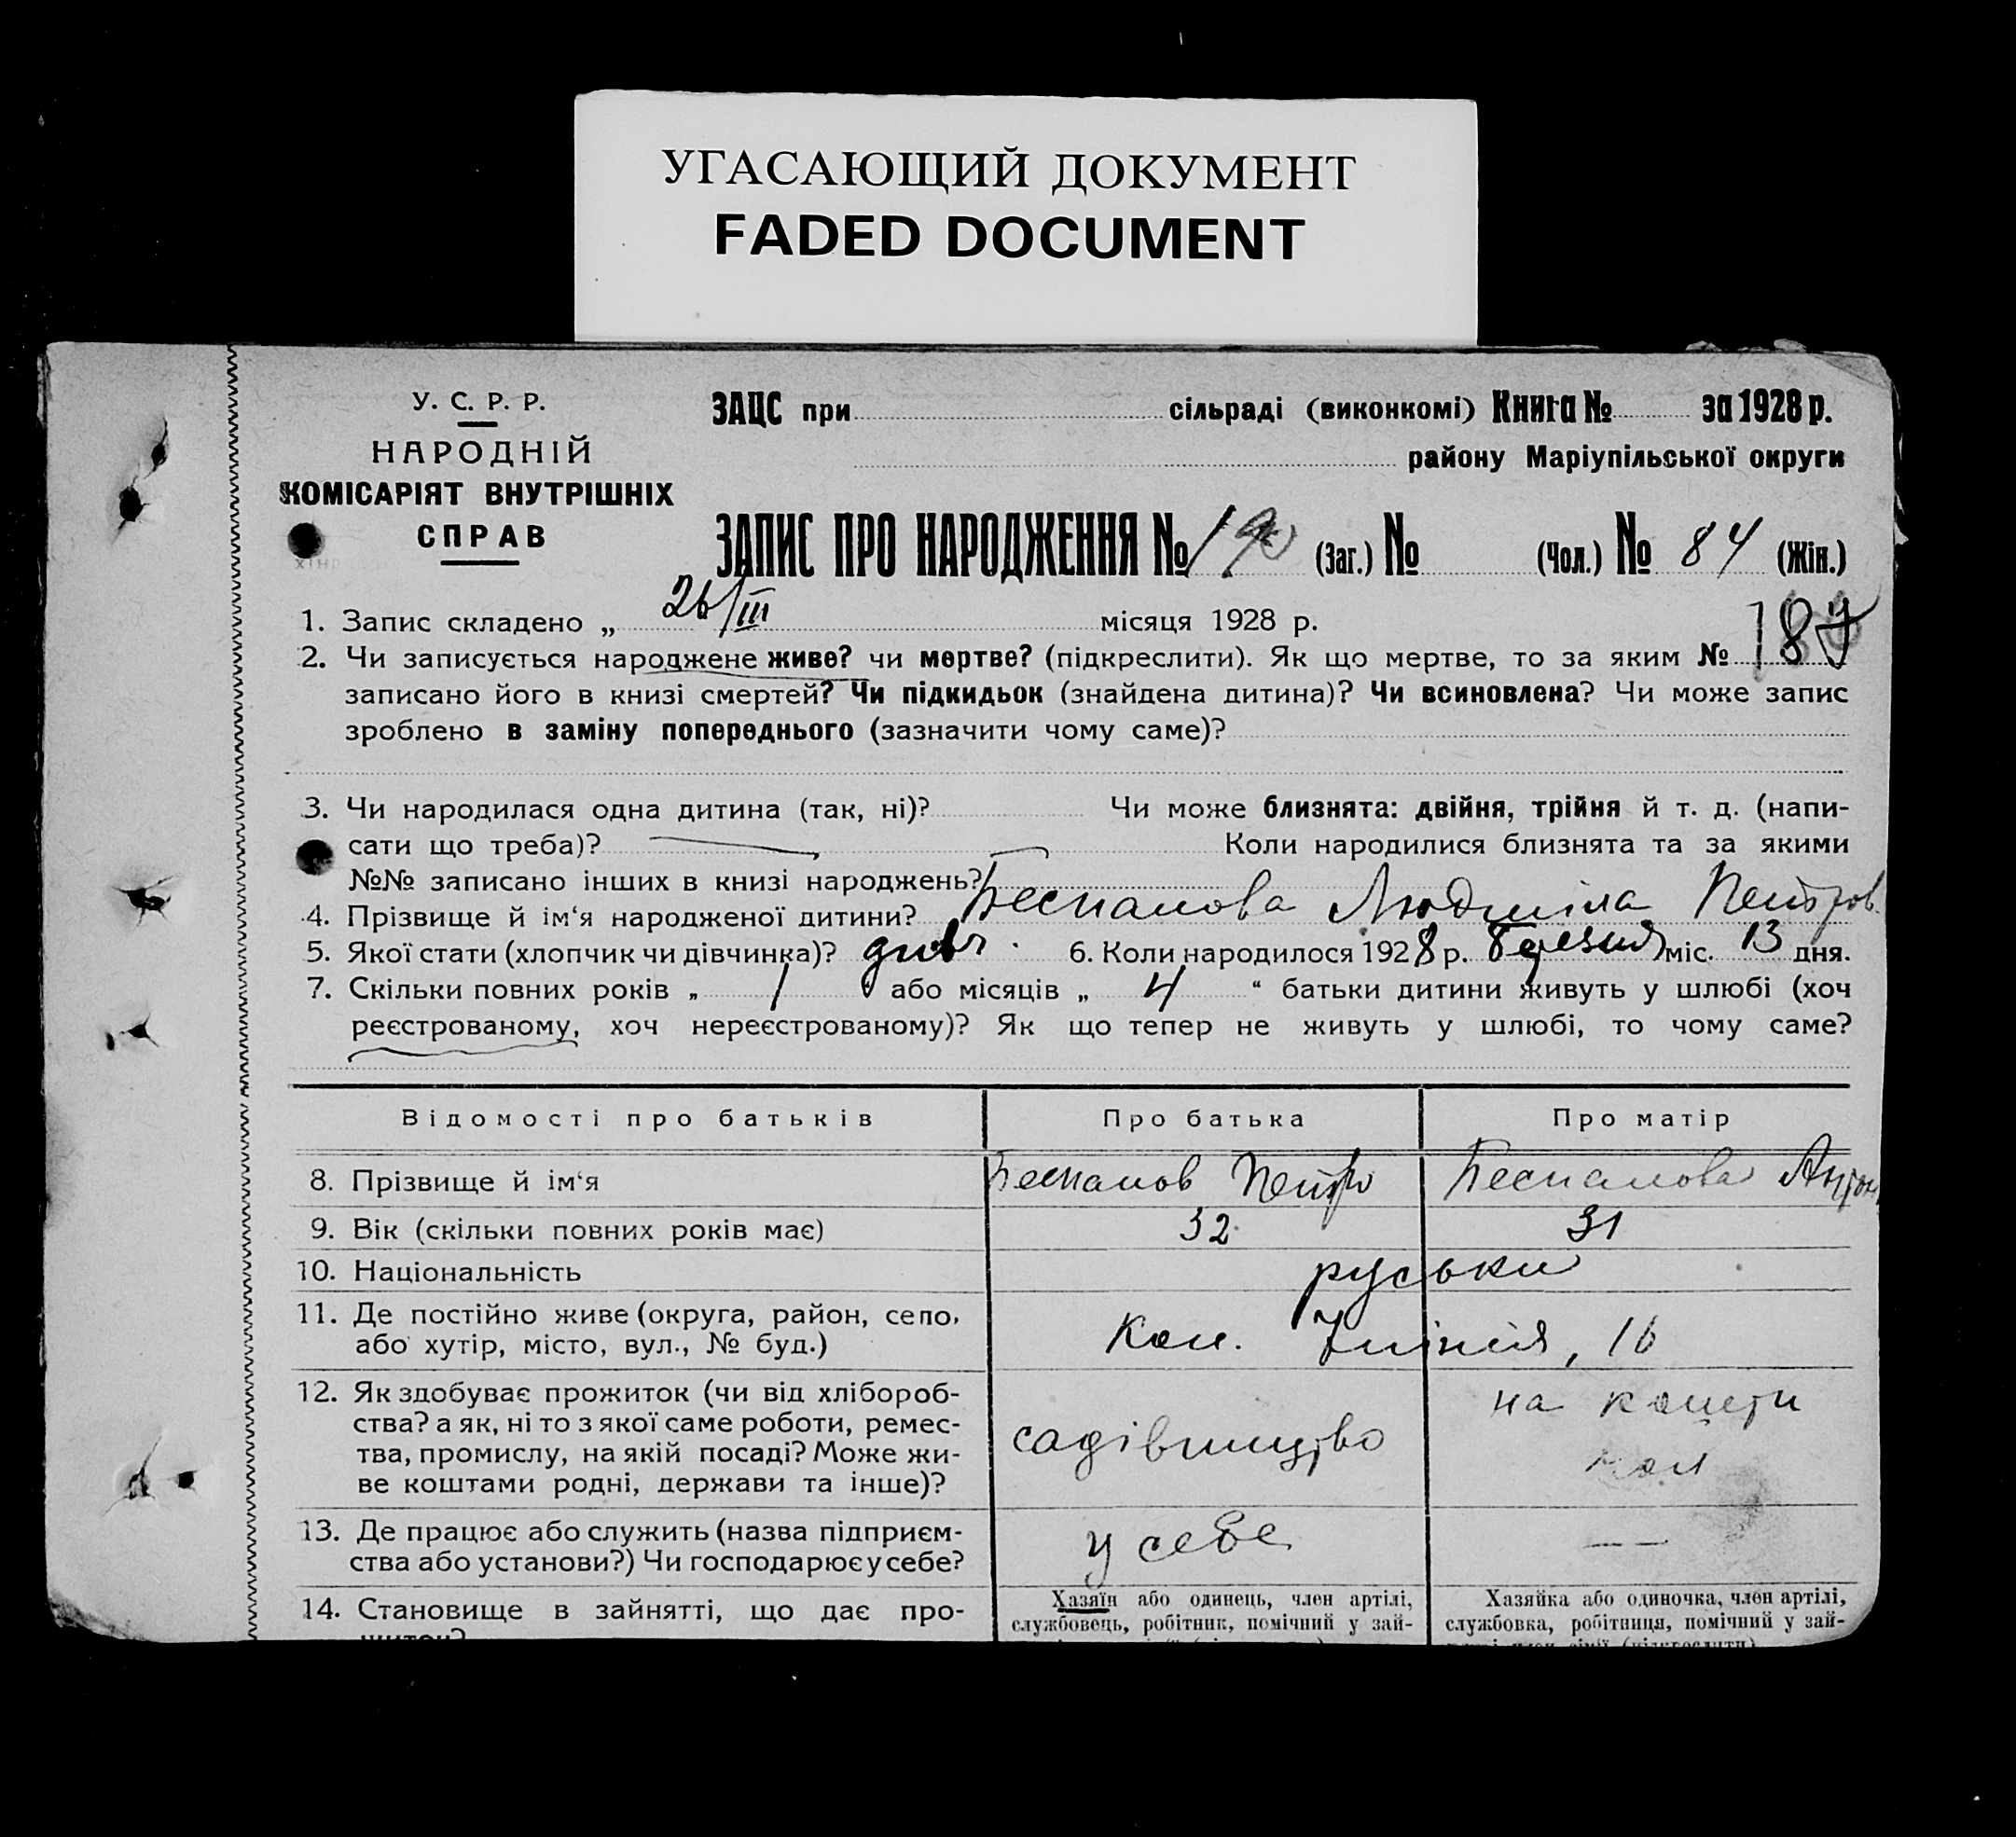 УГАСАЮЩИЙ ДОКУМЕНТ
FADED DOCUMENT
У. С. Р. Р.
НАРОДНІЙ
КОМІСАРІЯТ ВНУТРІШНІХ
СПРАВ
ЗАЦС при сільраді (виконкомі) Книга № за 1928 р.
району Маріупільської округи
ЗАПИС ПРО НАРОДЖЕННЯ № (Заг.) № (Чол.) № 84 (Жін.)
1. Запис складено „ 26/III місяця 1928 р.
187
2. Чи записується народжене живе? чи мертве? (підкреслити). Як що мертве, то за яким №
записано його в книзі смертей? Чи підкидьок (знайдена дитина)? Чи всиновлена? Чи може запис
зроблено в заміну попереднього (зазначити чому саме)?
3. Чи народилася одна дитина (так, ні)? Чи може близнята: двійня, трійня й т. д. (напи-
сати що треба)? Коли народилися близнята та за якими
№№ записано інших в книзі народжень?
4. Прізвище й ім‘я народженої дитини? Беспалова Людміла Петров.
5. Якої стати (хлопчик чи дівчинка)? 6. Коли народилося 1928 р. березня міс. 13 дня.
7. Скільки повних років „ 1 “ або місяців „ 4 “ батьки дитини живуть у шлюбі (хоч
реєстрованому, хоч нереєстрованому)? Як що тепер не живуть у шлюбі, то чому саме?
Відомості про батьків Про батька Про матір
8. Прізвище й ім‘я Беспалов Петро Беспалова Антон
9. Вік (скільки повних років має) 32 31
10. Національність руськи
11. Де постійно живе (округа, район, село,
або хутір, місто, вул., № буд.) 7 лінія, 16
12. Як здобуває прожиток (чи від хлібороб-
ства? а як, ні то з якої саме роботи, ремес-
тва, промислу, на якій посаді? Може жи-
ве коштами родні, держави та інше)?
садівництво
на кошти
13. Де працює або служить (назва підприєм-
ства або установи?) Чи господарює у себе?
у себе
—
14. Становище в зайнятті, що дає про-
Хазяїн або одинець, член артілі,
службовець, робітник, помічний у зай-
Хазяйка або одиночка, член артілі,
службовка, робітниця, помічний у зай-